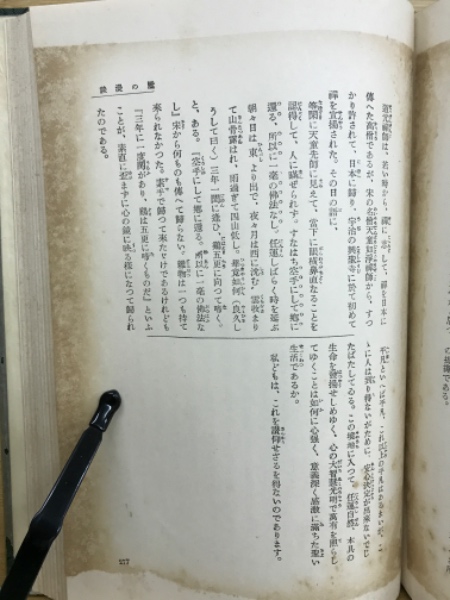 禪の漫談
道元禪師は、若い時から、禪に志して、禪を日本に
傳へた高僧であるが、宋の名僧天童如淨禪師から、すつ
かり許されて、日本に歸り、宇治の興聖寺に於て初めて
禪を宣揚された。その日の語に、
等閑に天童先師に見えて、當下に眼橫鼻直なることを
認得して、人に瞞せられず。すなはち空手にして鄕に
還る。所以に一毫の佛法なし。任運しばらく時を延ぶ
朝々日は東より出で、夜々月は西に沈む。雲收まり
て山骨露はれ、雨過ぎて四山低し。畢竟如何（良久し
うして曰く）三年一閏に逢ひ、鷄五更に向つて啼く。
と、ある。『空手にして鄕に還る。所以に一毫の佛法な
し』宋から何ものも傳へて歸らない。禮物は一つも持て
來られなかつた。素手で歸つて來たゞけであるけれども
『三年に一度閏があり、鷄は五更に啼くものだ』といふ
ことが、素直に歪まずに心の鏡に映る樣になつて歸られ
たのである。
平凡といへば平凡、これ以上の平凡はあるまいが、こ
ゝに人は到り得ないがために、安心決定が出來ないでじ
たばたしてゐる。この境地に入つて、任運自然、本具の
生命を發揚せしめゆく、心の大智慧光明で萬有を照らし
てゆくことは如何に心强く、意義深く感激に滿ちた聖い
生活であるか。
私どもは、これを讃仰せざるを得ないのであります。
257